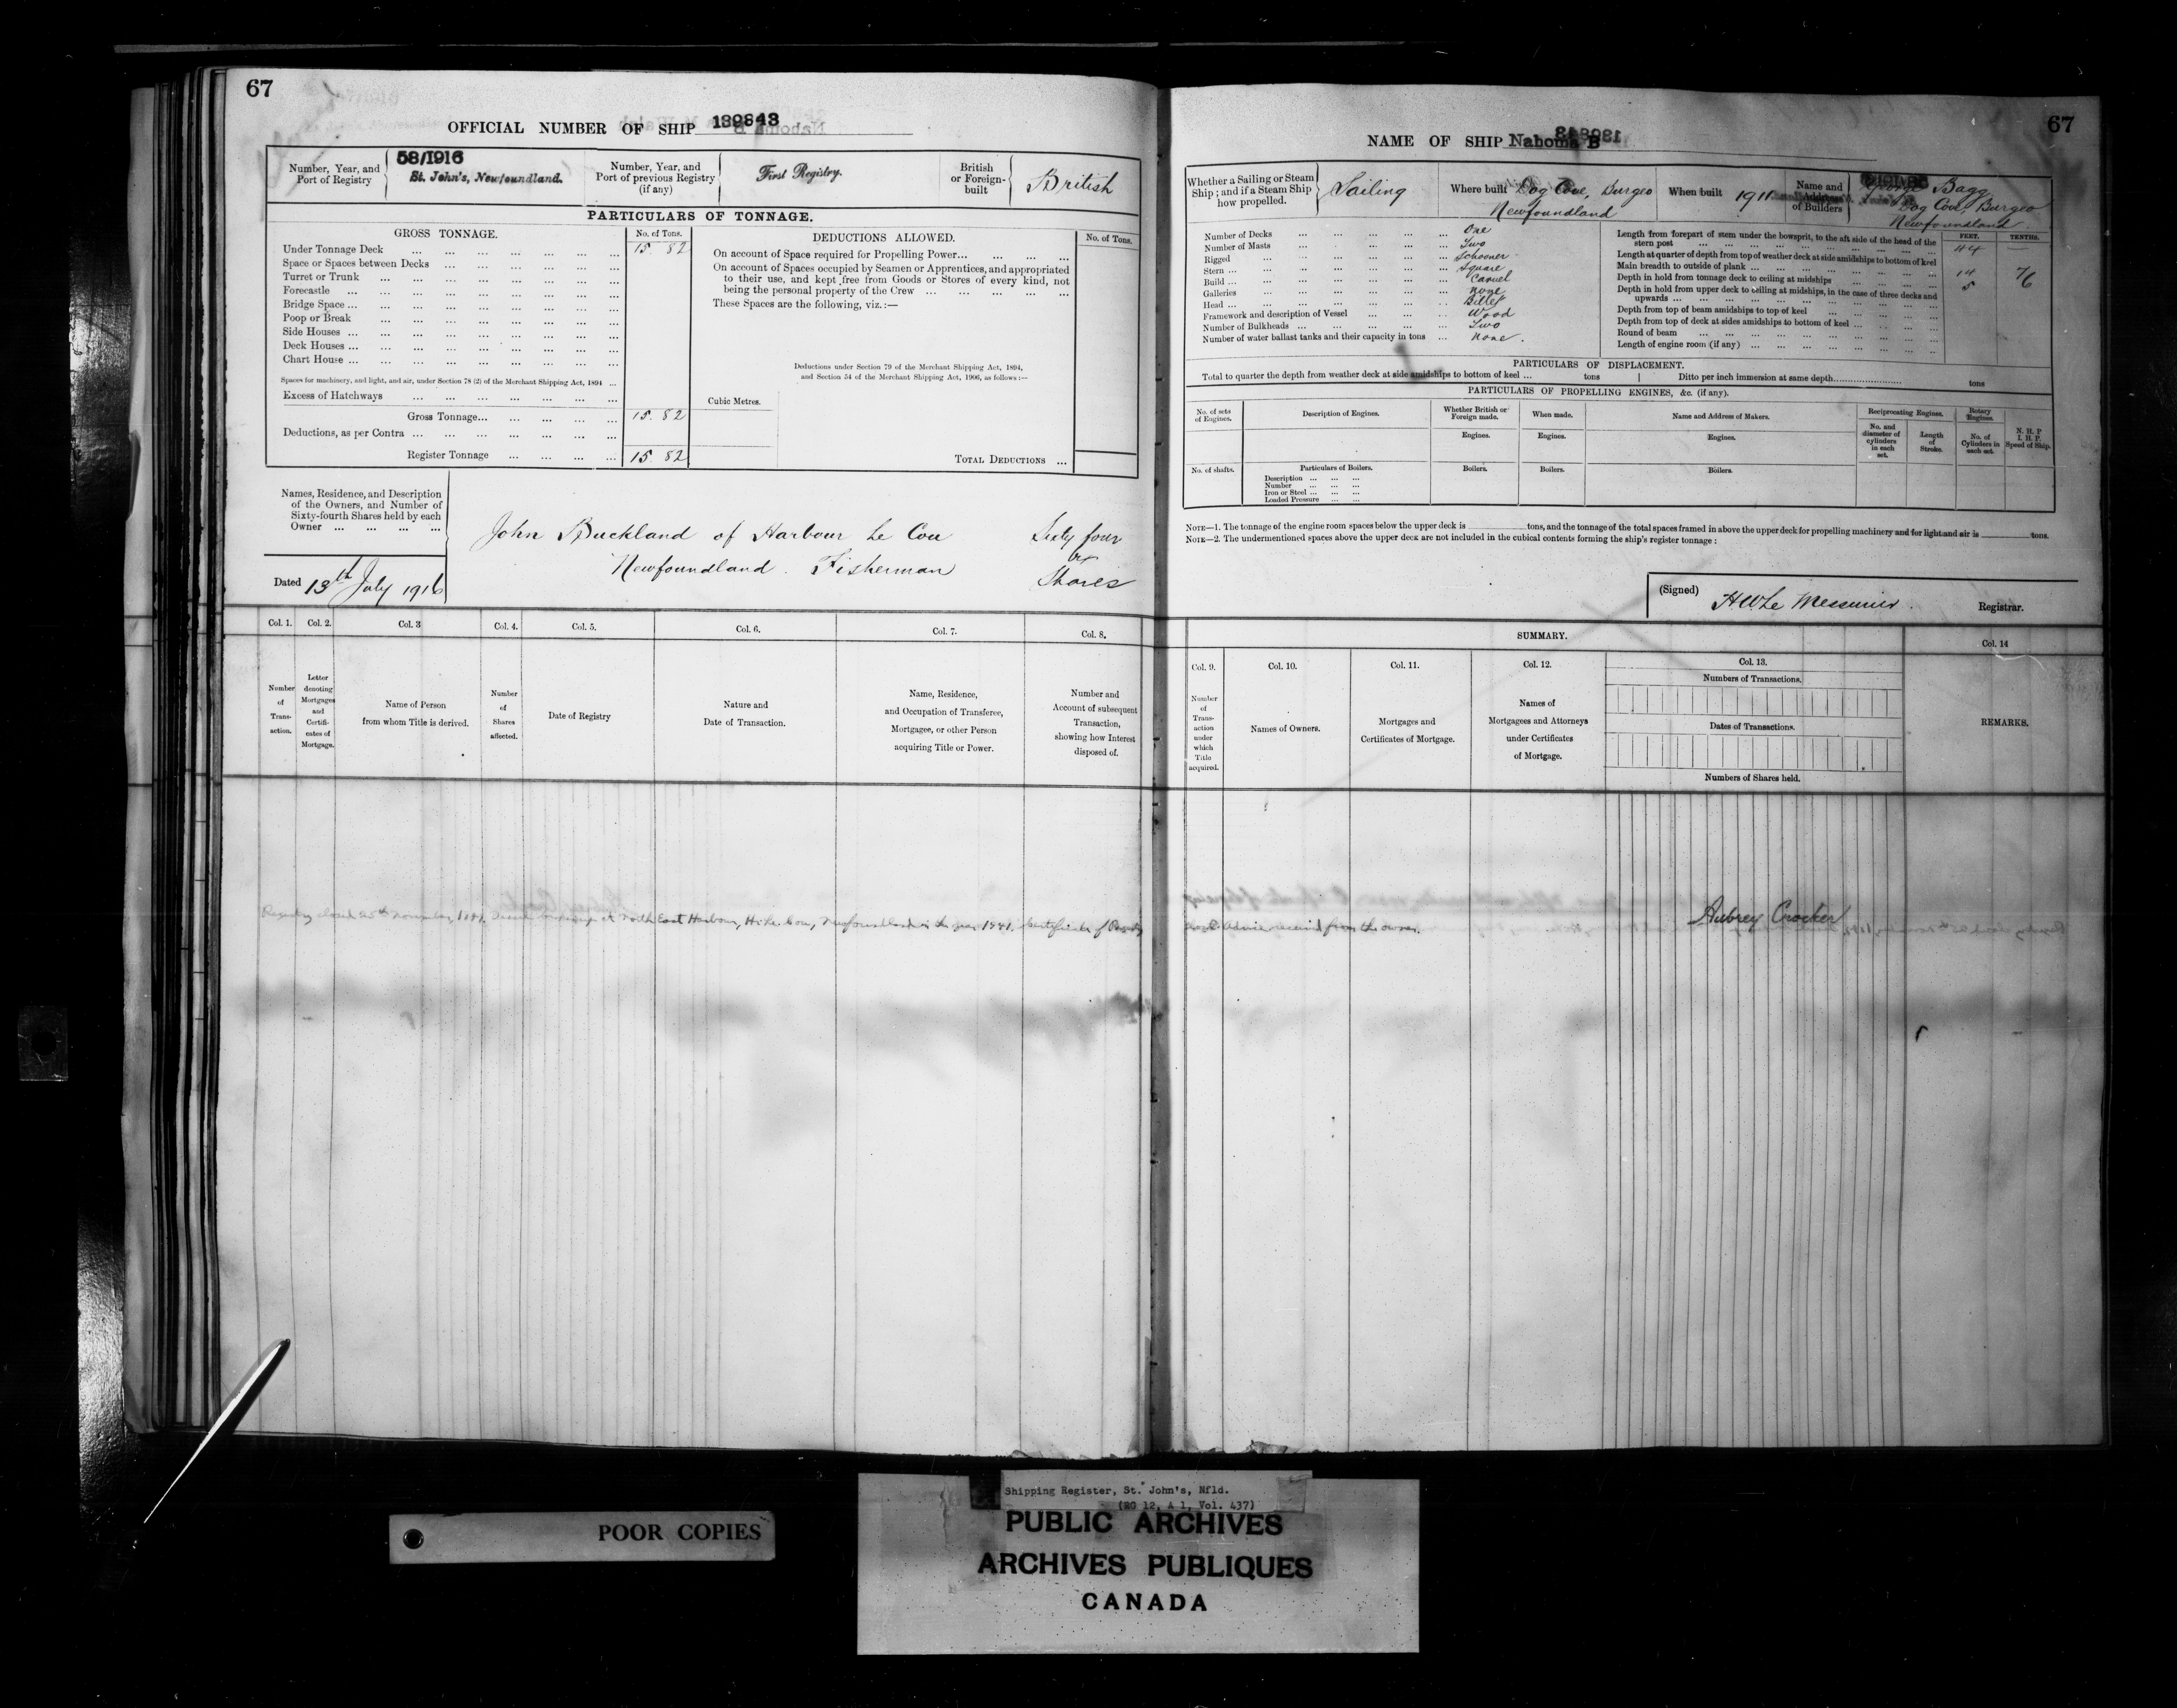 67
OFFICIAL NUMBER OF SHIP 139843
Number, Year, and Port of Registry
58/1916
St. John's, Newfoundland.
Number, Year, and Port of previous Registry (if any)
First Registry.
British or Foreign-built
British
PARTICULARS OF TONNAGE.
GROSS TONNAGE.
No. of Tons.
Under Tonnage Deck 15 82
Space or Spaces between Decks
Turret or Trunk
Forecastle
Bridge Space
Poop or Break
Side Houses
Deck Houses
Chart House
Spaces for machinery, and light, and air, under Section 78 (2) of the Merchant Shipping Act, 1894
Excess of Hatchways
Gross Tonnage 15. 82
Deductions, as per Contra
Register Tonnage 15 82
DEDUCTIONS ALLOWED.
No. of Tons.
On account of Space required for Propelling Power
On account of Spaces occupied by Seamen or Apprentices, and appropriated
to their use, and kept free from Goods or Stores of every kind, not
being the personal property of the Crew
These Spaces are the following, viz.:—
Deductions under Section 79 of the Merchant Shipping Act, 1894,
and Section 54 of the Merchant Shipping Act, 1906, as follows:—
Cubic Metres.
TOTAL DEDUCTIONS
Names, Residence, and Description
of the Owners, and Number of
Sixty-fourth Shares held by each
Owner
John Buckland of Harbour Le Cou Sixty four
Newfoundland. Fisherman Shares
Dated 13th July 1916
Col. 1. Col. 2. Col. 3 Col. 4. Col. 5. Col. 6. Col. 7. Col. 8.
Number of Transaction.
Letter denoting Mortgages and Certificates of Mortgage.
Name of Person from whom Title is derived.
Number of Shares affected.
Date of Registry
Nature and Date of Transaction.
Name, Residence, and Occupation of Transferee, Mortgagee, or other Person acquiring Title or Power.
Number and Account of subsequent Transaction, showing how Interest disposed of.
67
NAME OF SHIP Nahoma B
Whether a Sailing or Steam Ship; and if a Steam Ship how propelled.
Sailing
Where built Dog Cove, Burgeo
Newfoundland
When built 1911
Name and Address of Builders
George Bagg
Dog Cove, Burgeo
Newfoundland
Number of Decks One
Number of Masts Two
Rigged Schooner
Stern Square
Build Carvel
Galleries None
Head Billet
Framework and description of Vessel Wood
Number of Bulkheads Two
Number of water ballast tanks and their capacity in tons None.
FEET. TENTHS.
Length from forepart of stem under the bowsprit, to the aft side of the head of the
stern post 44
Length at quarter of depth from top of weather deck at side amidships to bottom of keel
Main breadth to outside of plank 14 7
Depth in hold from tonnage deck to ceiling at midships 5 6
Depth in hold from upper deck to ceiling at midships, in the case of three decks and
upwards
Depth from top of beam amidships to top of keel
Depth from top of deck at sides amidships to bottom of keel
Round of beam
Length of engine room (if any)
PARTICULARS OF DISPLACEMENT.
Total to quarter the depth from weather deck at side amidships to bottom of keel ... tons
Ditto per inch immersion at same depth tons
PARTICULARS OF PROPELLING ENGINES, &c. (if any).
No. of sets of Engines.
Description of Engines.
Whether British or Foreign made.
When made.
Name and Address of Makers.
Reciprocating Engines.
Rotary Engines.
Engines. Engines. Engines.
No. and diameter of cylinders in each set.
Length of Stroke.
No. of Cylinders in each set.
N. H. P
I. H. P.
Speed of Ship.
No. of shafts.
Particulars of Boilers.
Boilers. Boilers. Boilers.
Description
Number
Iron or Steel
Loaded Pressure
NOTE—1. The tonnage of the engine room spaces below the upper deck is tons, and the tonnage of the total spaces framed in above the upper deck for propelling machinery and for light and air is tons.
NOTE—2. The undermentioned spaces above the upper deck are not included in the cubical contents forming the ship's register tonnage:
(Signed) H W Le Messurier. Registrar.
SUMMARY.
Col. 9. Col. 10. Col. 11. Col. 12. Col. 13. Col. 14
Number of Transaction under which Title acquired.
Names of Owners.
Mortgages and Certificates of Mortgage.
Names of Mortgagees and Attorneys under Certificates of Mortgage.
Numbers of Transactions.
Dates of Transactions.
Numbers of Shares held.
REMARKS.
Registry closed 25th November at North East Harbour, Newfoundland in the year 1941. Certificate of Registry
Advice received from the owner. Aubrey Crocker
POOR COPIES
Shipping Register, St. John's, Nfld.
(RG 12, A 1, Vol. 437)
PUBLIC ARCHIVES
ARCHIVES PUBLIQUES
CANADA